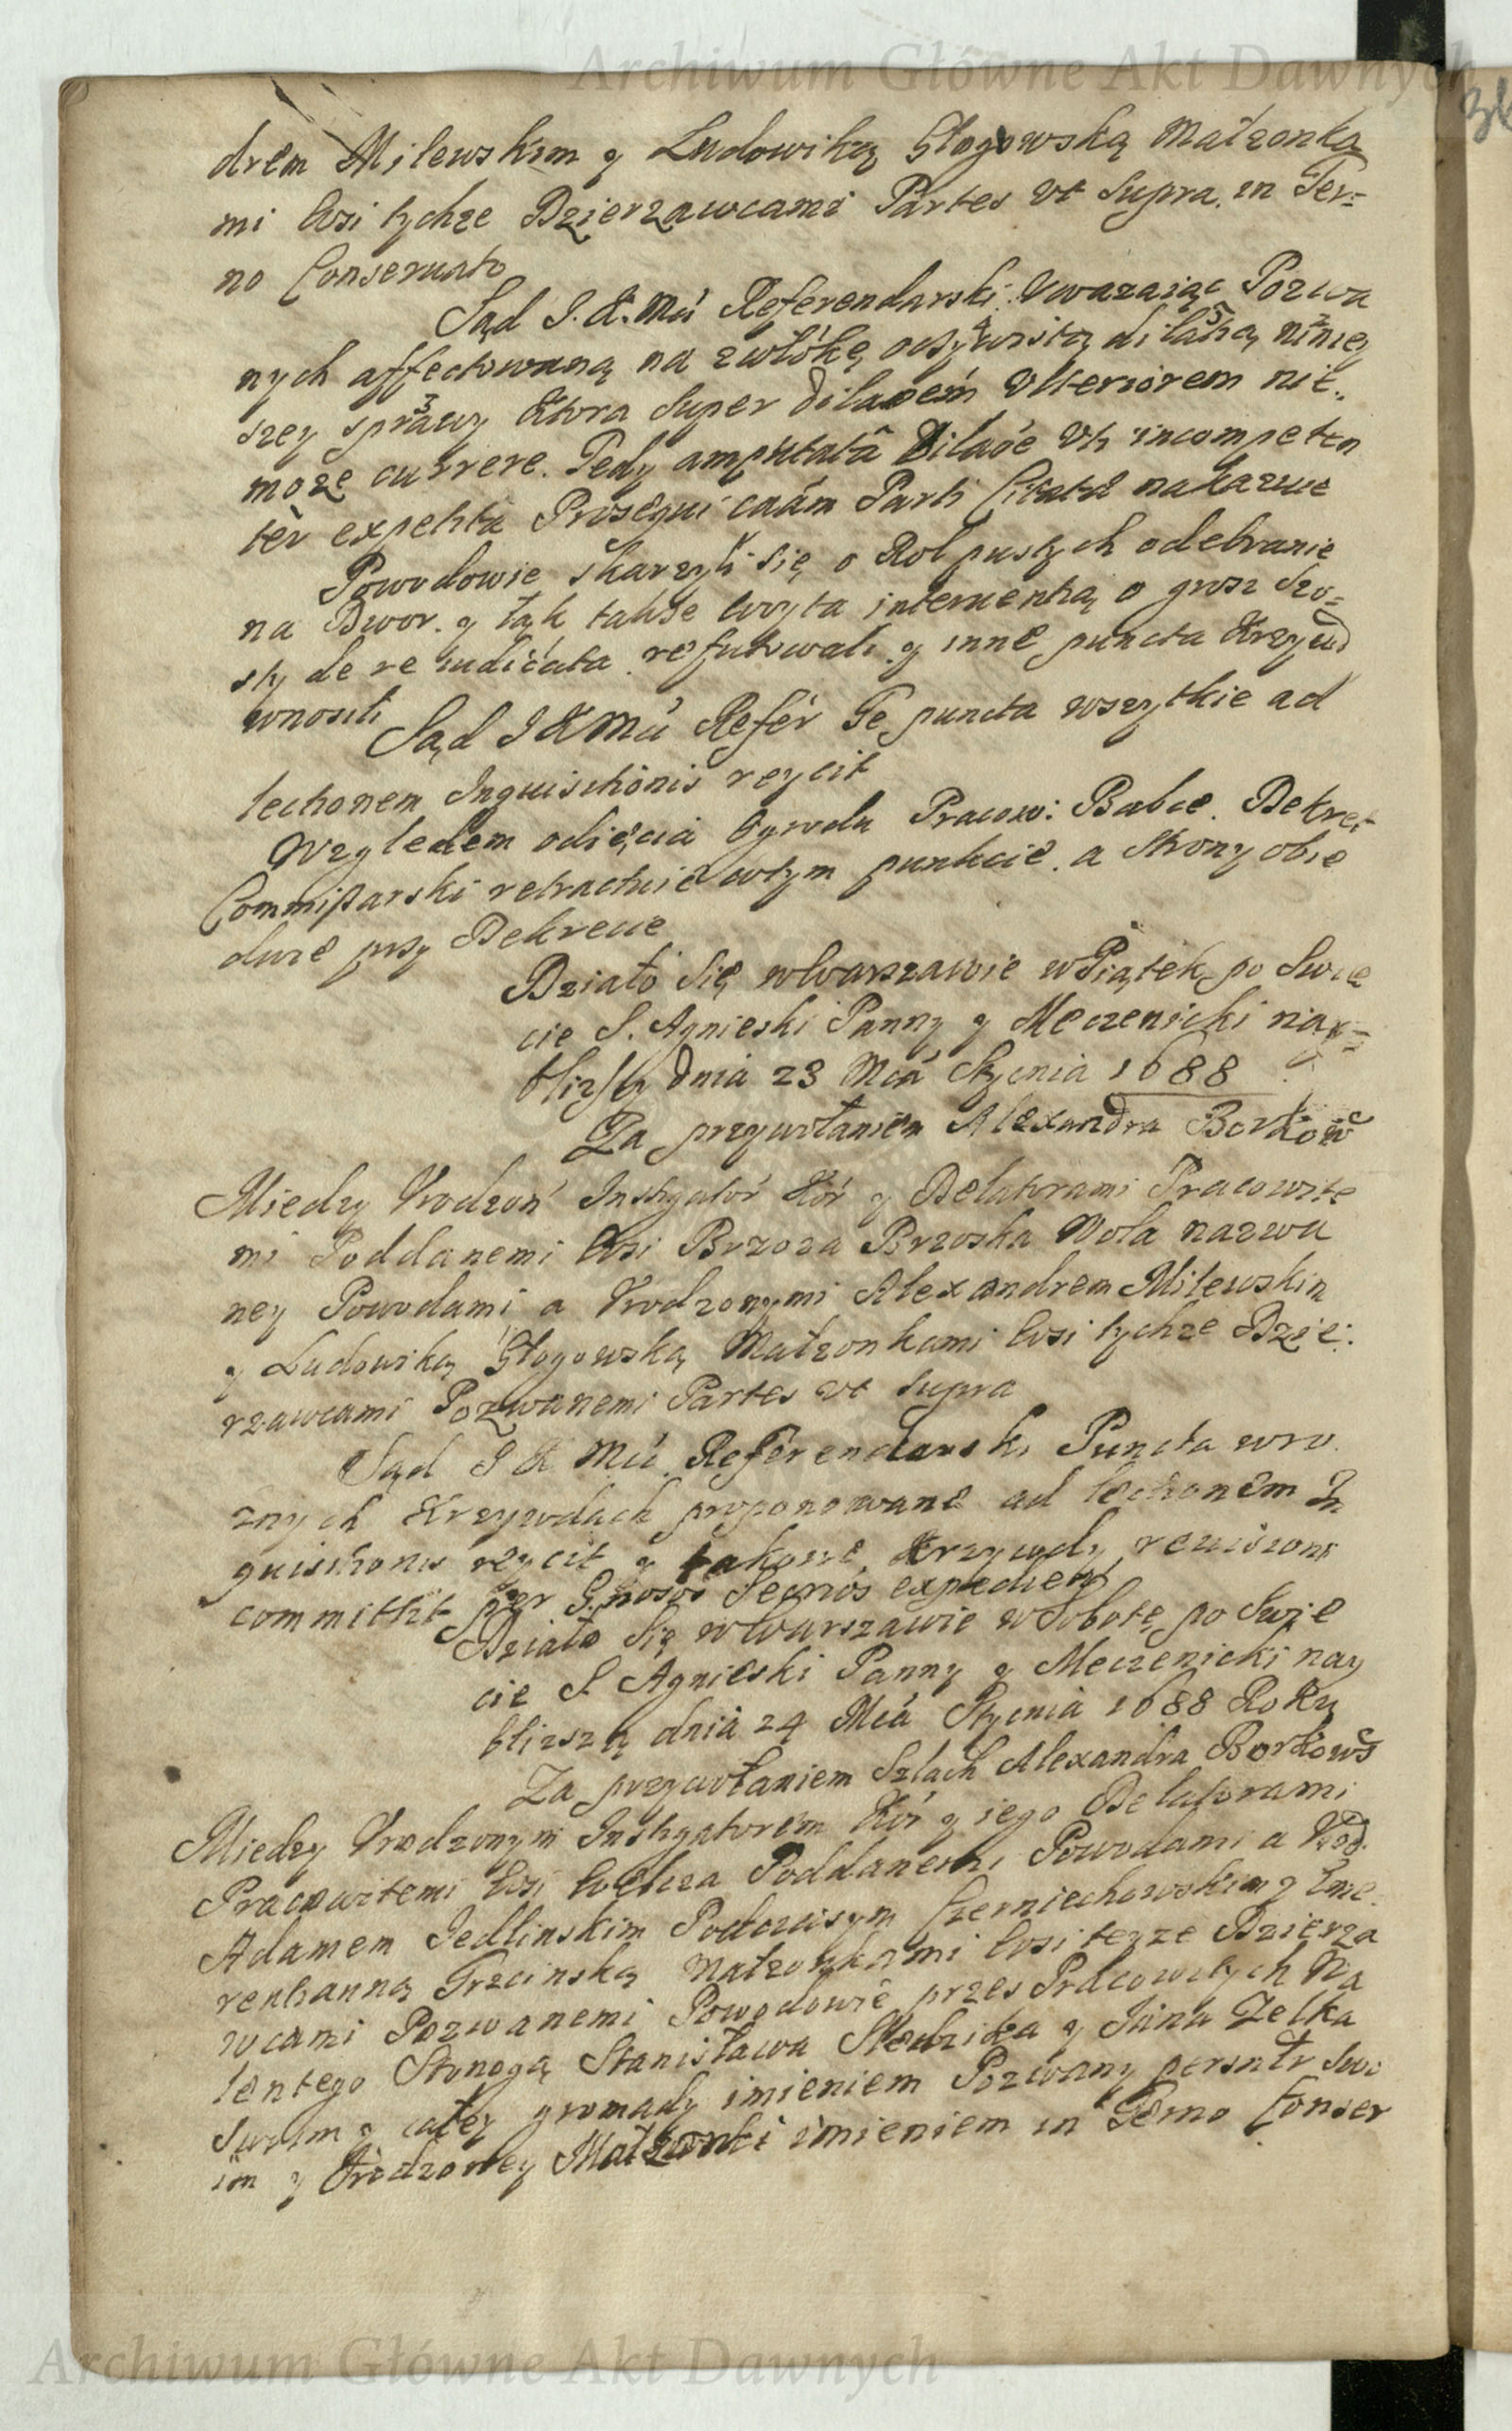 Archiwum Główne Akt Dawnych
36
drem Milewskim y Ludowiką Głogowską Małżonka
mi Wsi tychze Dzierzawcami Partes vt Supra. in Ter=
no Conseruato
Sąd J. K. Mći Referendarski. Vwazaiąc Pozwa
nych affectowaną na zwłókę oczywistą dilatią niniey
szey sprawy Ktora Super dilaoem Vlteriorem nie
moze currere. Tedy amputatâ Dilaoe Vti incompeten
ter expetita Prosequi caam Parti Citatæ nakazuie
Powodowie skarzyli się o Rol pustych odebranie
na Dwor. y tak takze woyta interuentią o grosz Szo=
sty de re iudicata refutowali. y inne puncta Krzywd
wnosili
Sąd J K Mći Refer Te puncta wszytkie ad
lectionem Inquisitionis reycit
Względem odięcia Ogrodu Pracow: Babce. Dekret
Commissarski retractuie wtym punkcie. a Strony obie
 przy Dekrecie
Działo Się wWarszawie wPiątek po Swię
cie S. Agnieski Panny y Meczenicki nay=
bliższy dnia 23 Mca Stycnia 1688
Za przywołaniem Alexandra Borkows
Miedzy Vrodzon Instigator Kor y Delatorami Pracowite
mi Poddanemi Wsi Brzoza Brzoska Wola nazwa
ney Powodami a Vrodzonymi Alexandrem Milewskim
y Ludowiką Głogowską Małzonkami Wsi tychze Dzie:
rzawcami Pozwanemi Partes vt supra
Sąd J K Mći Referendarski Puncta wro
znych Krzywdach proponowane ad lectionem In
quisitionis reycit y takowe Krzywdy reuisioni
committit per Gnosos expedień
Działo Się wWarszawie wSobotę po Swię
cie S. Agnieski Panny y Meczenicki nay
bliższą dnia 24 Mca Stycnia 1688 Roku
Za przywołaniem Szlach Alexandra Borkows
Miedzy Vrodzonym Instigatorem Kor y iego Delatorami
Pracowitemi Wsi Poddanemi Powodami a Vrod.
Adamem Jedlinskim Podczaszym Czerniechowskim y
 Trzcinską Małzonkami Wsi teyze Dzierza
wcami Pozwanemi Powodowie przes Pracowitych Wa
lentego Stonogą Stanisława y Jana Zelka
Swoim y całey gromady imieniem Pozwany persnlr Swo
im y Vrodzoney Małzonki imieniem in Termo Conser
Archiwum Główne Akt Dawnych